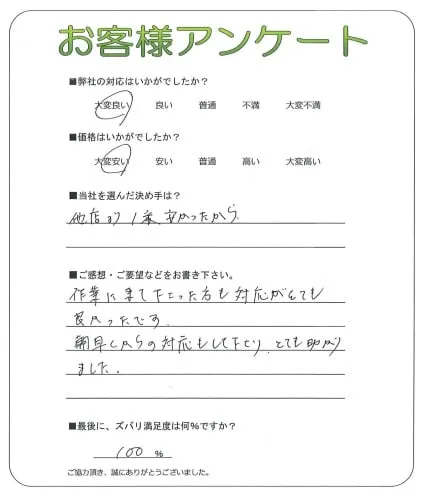 お客様アンケート
■弊社の対応はいかがでしたか？
大変良い 良い 普通 不満 大変不満
■価格はいかがでしたか？
大変安い 安い 普通 高い 大変高い
■当社を選んだ決め手は？
他店より1番安かったから
■ご感想・ご要望などをお書き下さい。
作業に来て下さった方も対応がとても
良かったです。
朝早くからの対応もして下さり、とても助かり
ました。
■最後に、ズバリ満足度は何％ですか？
100 %
ご協力頂き、誠にありがとうございました。